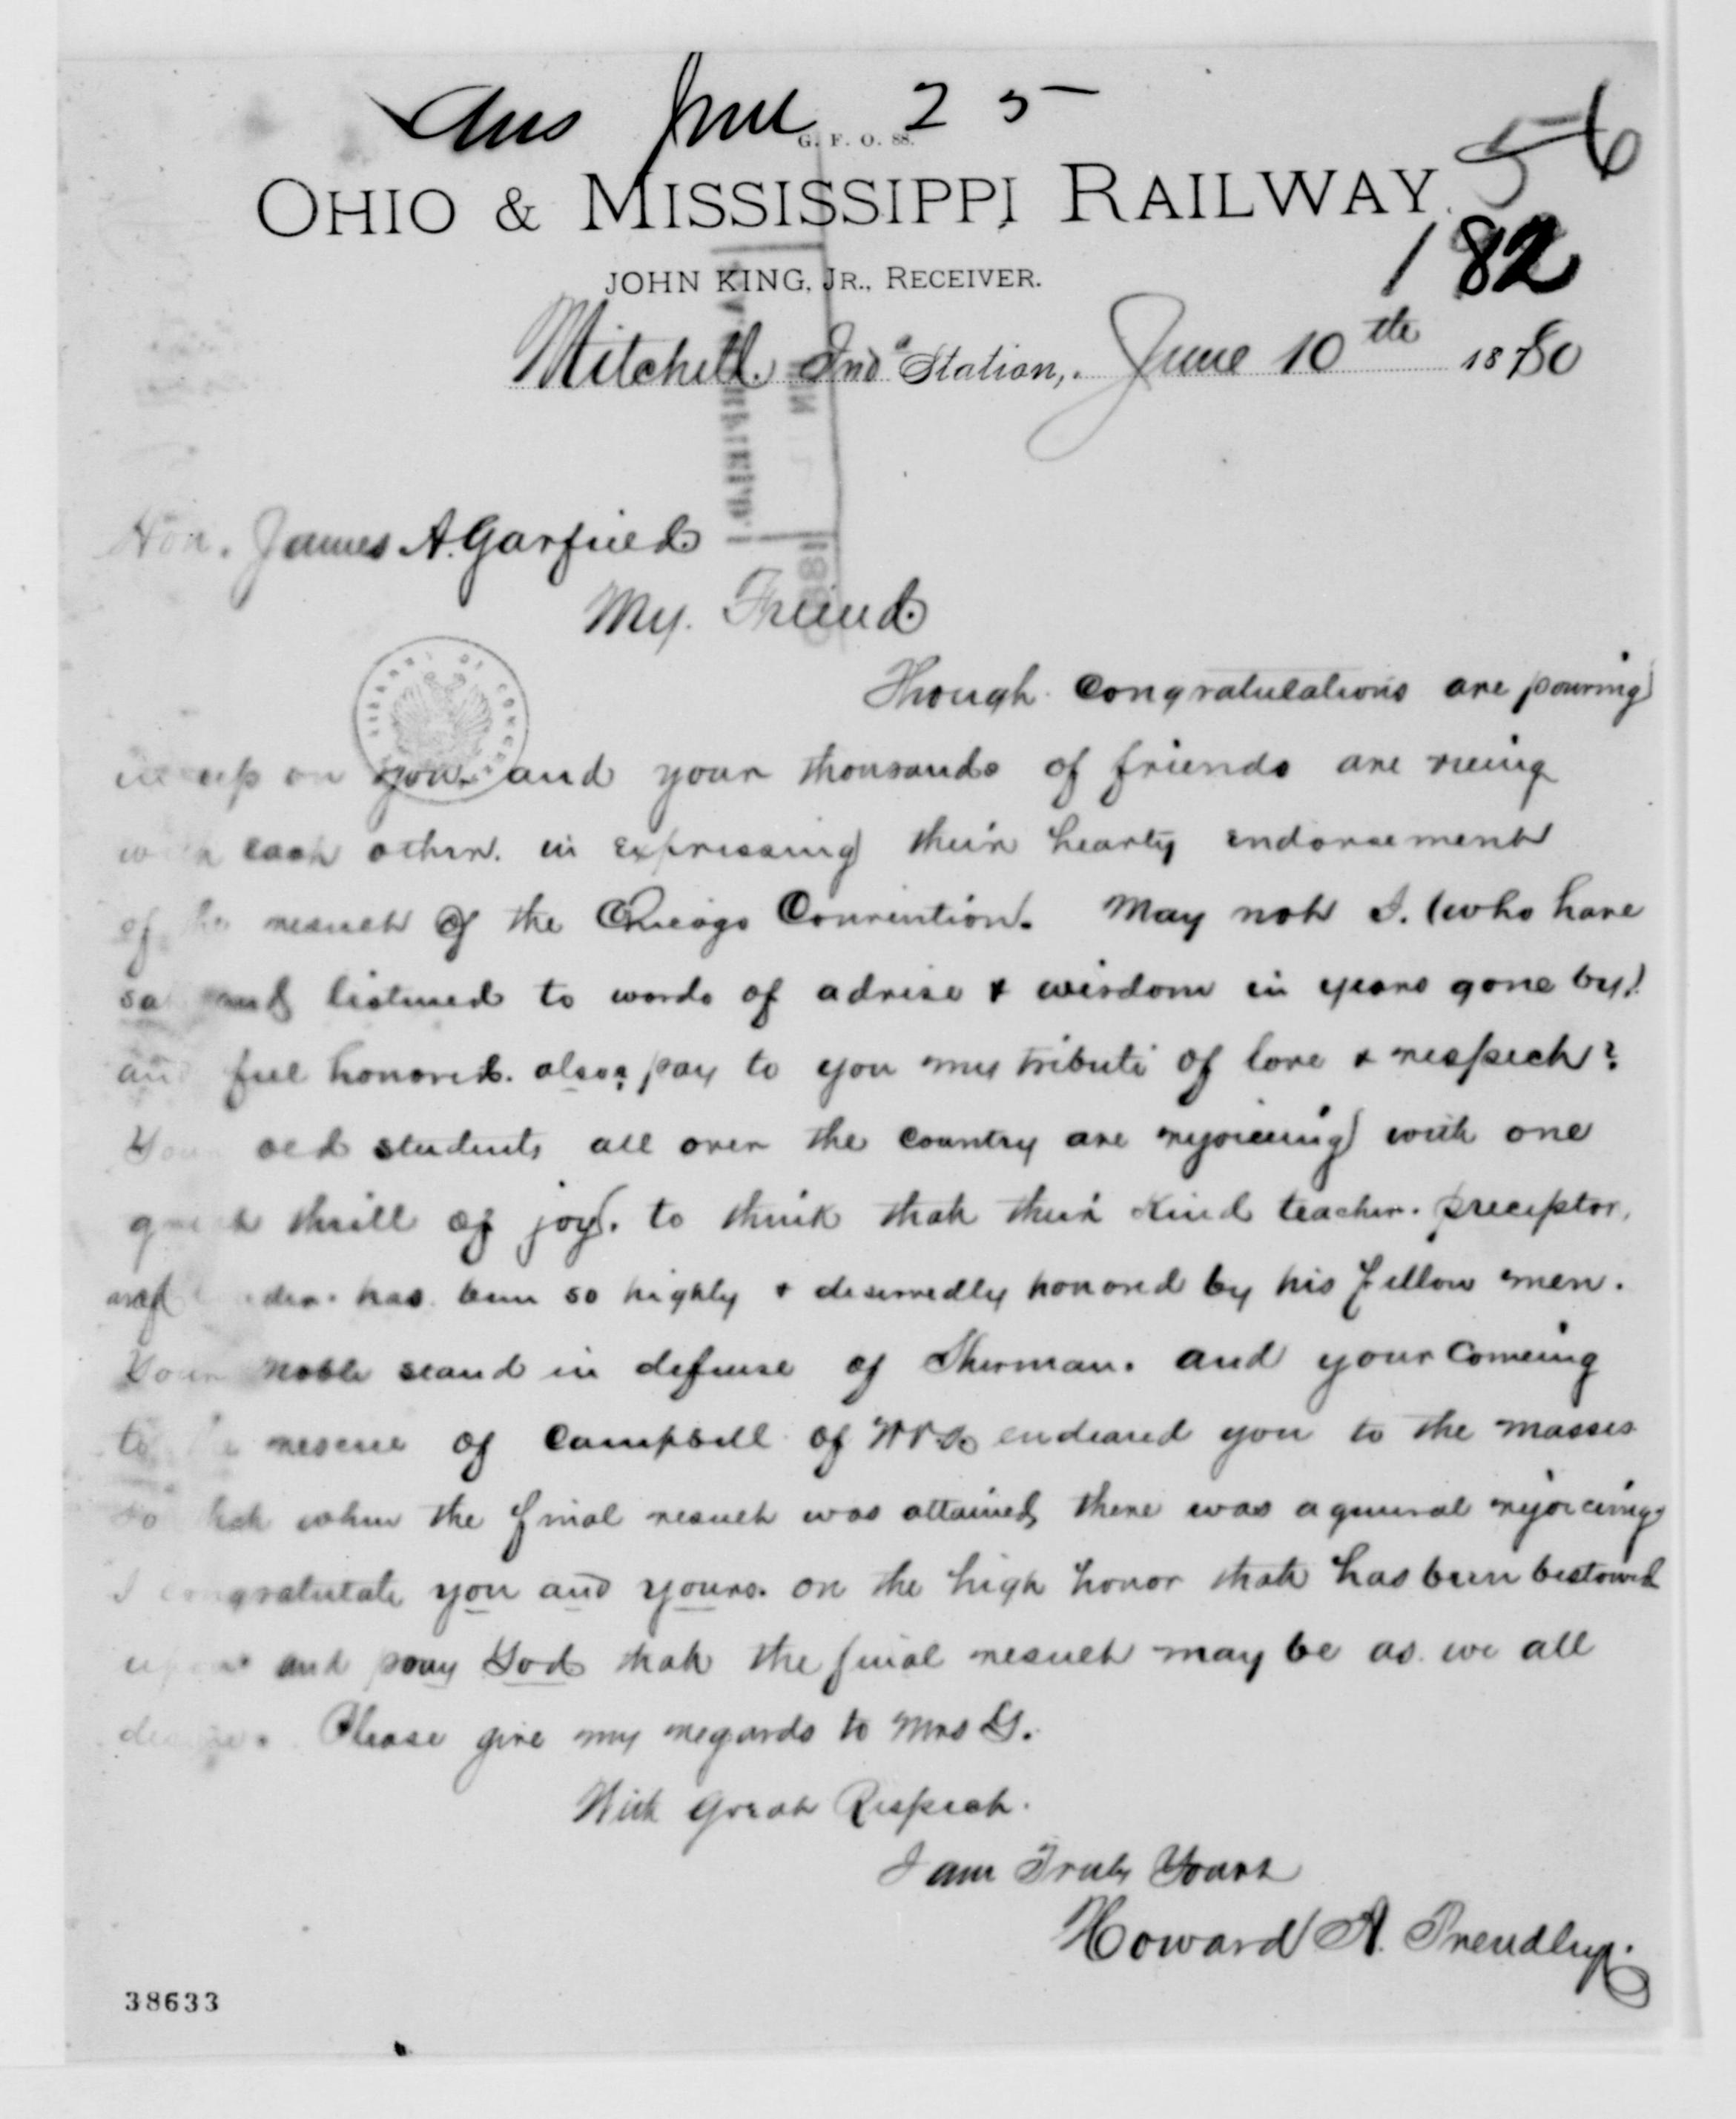 Ans June 25
G. F. O. 88.
56
OHIO & MISSISSIPPI RAILWAY.
182
JOHN KING, JR., RECEIVER.
Mitchell. Inda Station, June 10th 1880
Hon. James A. Garfield
My. Friend.
LIBRARY OF CONGRESS
Though Congratulations are pouring
in up on you. and your thousands of friends are vieing
with each other. in expressing their hearty endorsement
of the result of the Chicago Convention. May not I. (who have
sat and listened to words of advise & wisdom in years gone by)
and feel honored. also, pay to you my tribute of love & respect?
Your old students all over the country are rejoiceing with one
great thrill of joy. to think that their kind teacher. preceptor,
and has been so highly & deservedly honored by his fellow men.
Your noble stand in defense of Sherman. and your Comeing
to the rescue of Campbell of endeared you to the masses
So that when the final result was attained, there was a general rejoicing.
I congratulate you and yours. on the high honor that has been bestowed
upon and pray God that the final result may be as we all
desire. Please give my regards to Mrs G.
With Great Respect.
I am Truly Yours
Howard A.
38633